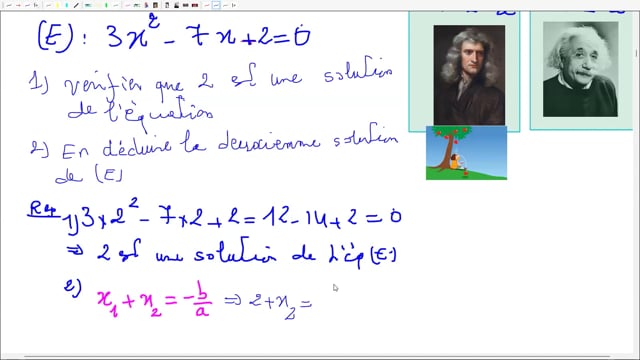 (E): 3x² - 7x + 2 = 0
1) Vérifier que 2 est une solution
de l'équation
2) En déduire la deuxiemme solution
de (E)
Rep 1) 3 × 2² - 7 × 2 + 2 = 12 - 14 + 2 = 0
⇒ 2 est une solution de l'éq (E)
2) x₁ + x₂ = -b/a ⇒ 2 + x₂ =